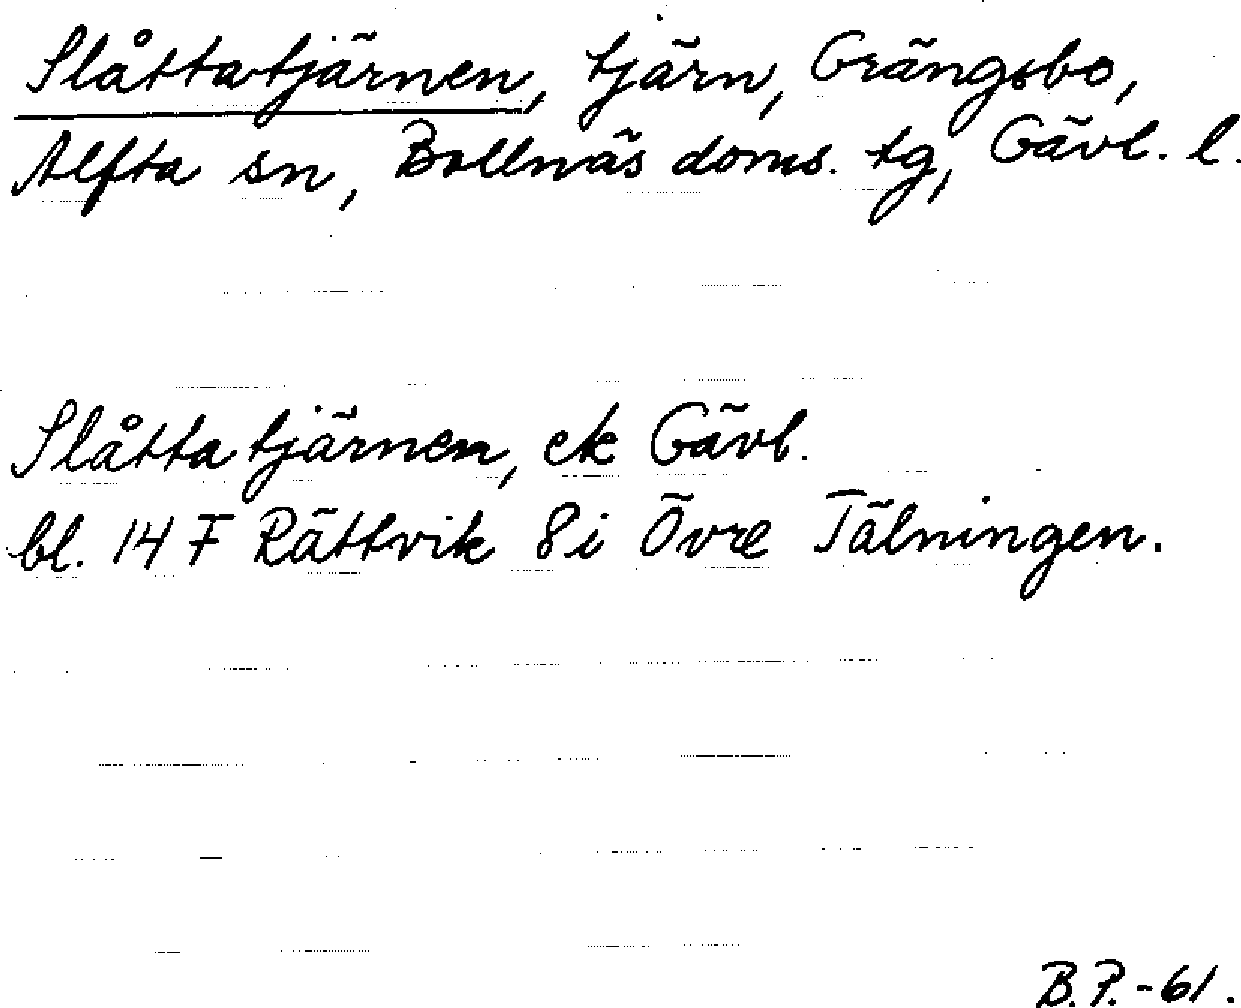 Slåttatjärnen, tjärn, Grängsbo,
Alfta sn, Bollnäs doms. tg, Gävl. l.
Slåttatjärnen, ek Gävl.
bl. 14 F Rättvik 8 i Övre Tälningen.
B.P.-61.